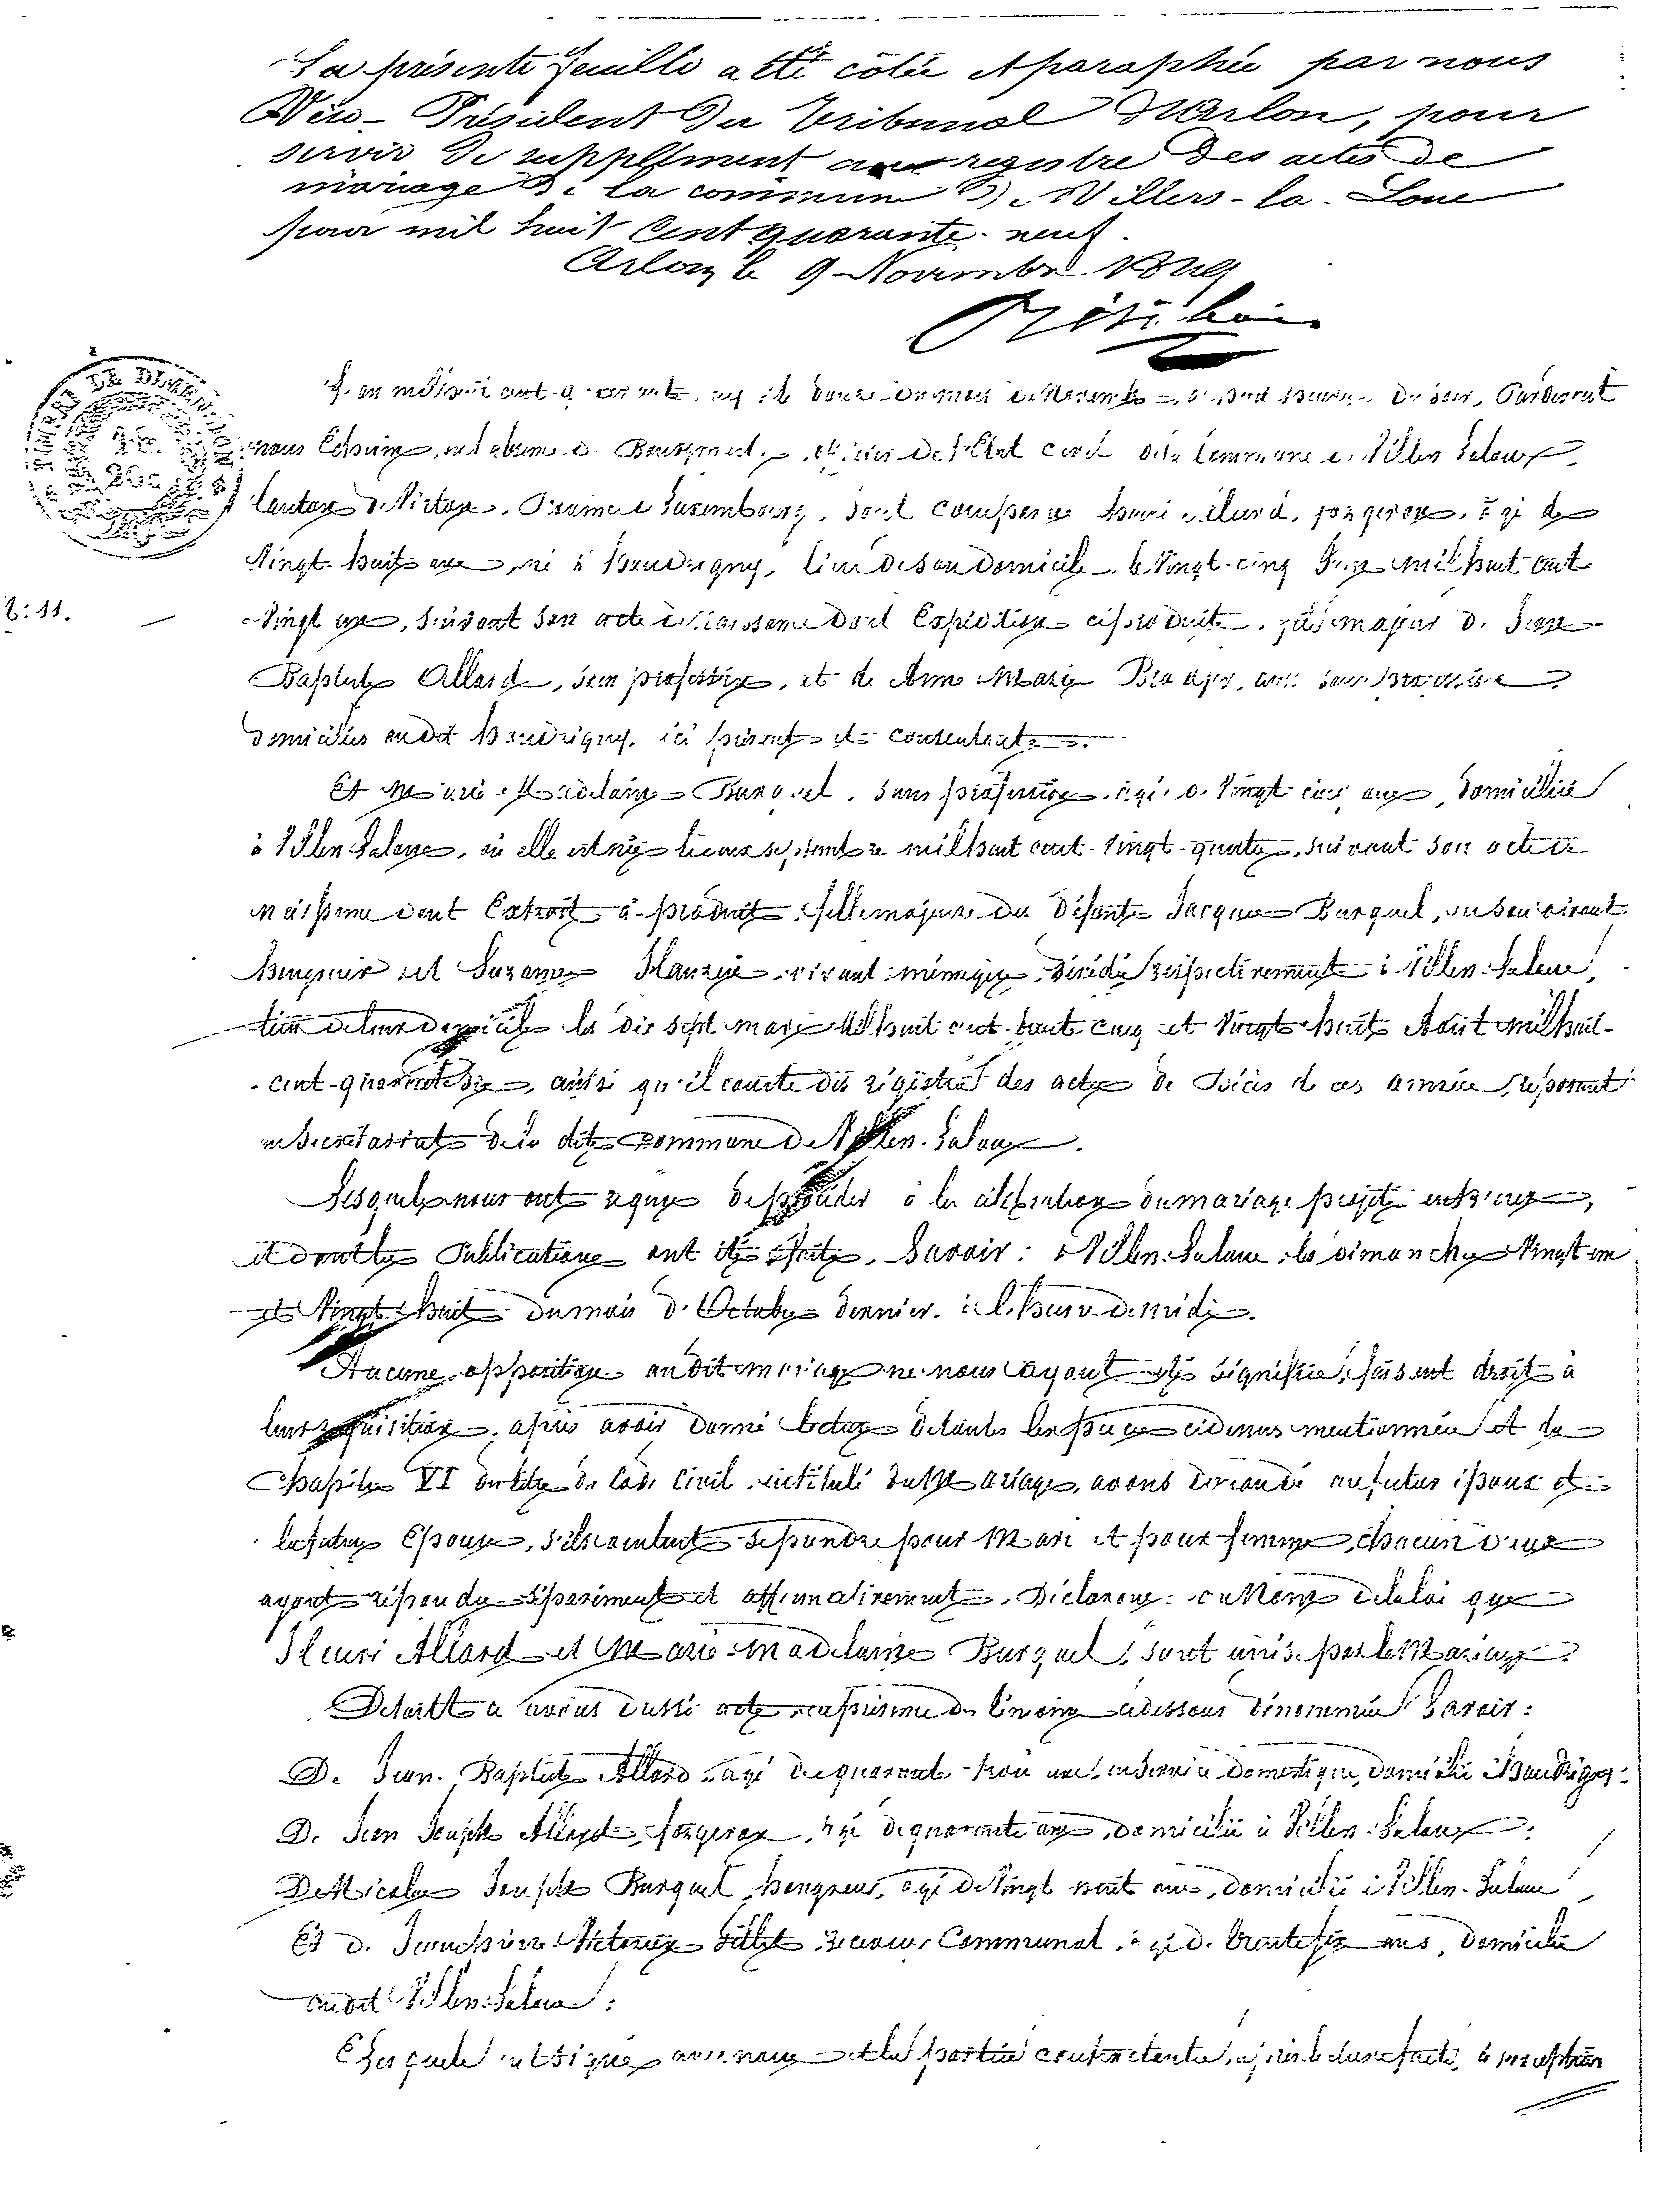 La présente feuille a été côtée et paraphée par nous
Vice-Président du Tribunal d'Arlon, pour
servir de supplément au registre des actes de
mariage de la commune de Villers-la-Loue
pour mil huit cent quarante-neuf.
Arlon, le 9 Novembre 1849
L'an mil huit cent quarante neuf le douze du mois de Novembre, à heures du soir, Pardevant
nous officier de l'Etat civil de la Commune de Villers Laloue,
Canton de Virton, Province Luxembourg, sont comparus henri allard, forgeron, âgé de
Vingt huit ans, né à houdrigny, lieu de son domicile, le Vingt-cinq Juin mil huit cent
Vingt un, suivant son acte de naissance dont Expédition est produite, fils majeur de Jean
Baptiste Allard, sans profession, et de Anne Marie aussi sans profession
domiciliés au dit houdrigny, ici présents et consentants.
Et Marie Madelaine Burquel, sans profession, âgée de Vingt cinq ans, domiciliée
à Villers Laloue, où elle est née le onze septembre mil huit cent-Vingt-quatre, suivant son acte de
naissance dont Extrait a produit, fille majeure du Défunt Jacques Burquel, en son vivant
hongreur et Suzanne vivant ménagère, décédés respectivement à Villers-Laloue,
lieu de leur domicile les dix sept mars Mil huit cent trente cinq et Vingt huit Août mil huit-
cent-quarante six, ainsi qu'il conste des régistres des actes de décès de ces années, reposant
au Secrétariat de la dite commune de Villers-Laloue.
Lesquels nous ont requis de procéder à la célébration du mariage projeté entr'eux,
et dont les Publications ont été faites, Savoir: à Villers-Laloue les dimanches Vingt un
et Vingt-huit du mois d'Octobre dernier, à l'heure de midi.
Aucune opposition au dit mariage ne nous ayant été signifiée, faisant droit à
leur réquisition, après avoir donné lecture de toutes les pièces ci dessus mentionnées et du
Chapitre VI du titre du Code Civil intitulé du Mariage, avons demandé au futur époux et à
la future Epouse, s'ils veulent se prendre pour Mari et pour femme, chacun d'eux
ayant répondu séparément et affirmativement, Déclarons au Nom de la loi que
Henri Allard et Marie-Madelaine Burquel, sont unis par le Mariage.
De tout ce avons dressé acte en présence des témoins ci dessous dénommés Savoir:
De Jean-Baptiste Allard, âgé de quarante-trois ans, domestique, domicilié à houdrigny;
De Jean Joseph Allard, forgeron, âgé de quarante ans, domicilié à Villers-Laloue;
De Nicolas Joseph Burquel, hongreur, âgé de Vingt neuf ans, domicilié à Villers-Laloue,
Et de Receveur Communal, âgé de trente six ans, domicilié
au dit Villers-Laloue;
Lesquels ont signé avec nous et les parties contractantes, après lecture faite, à l'exception